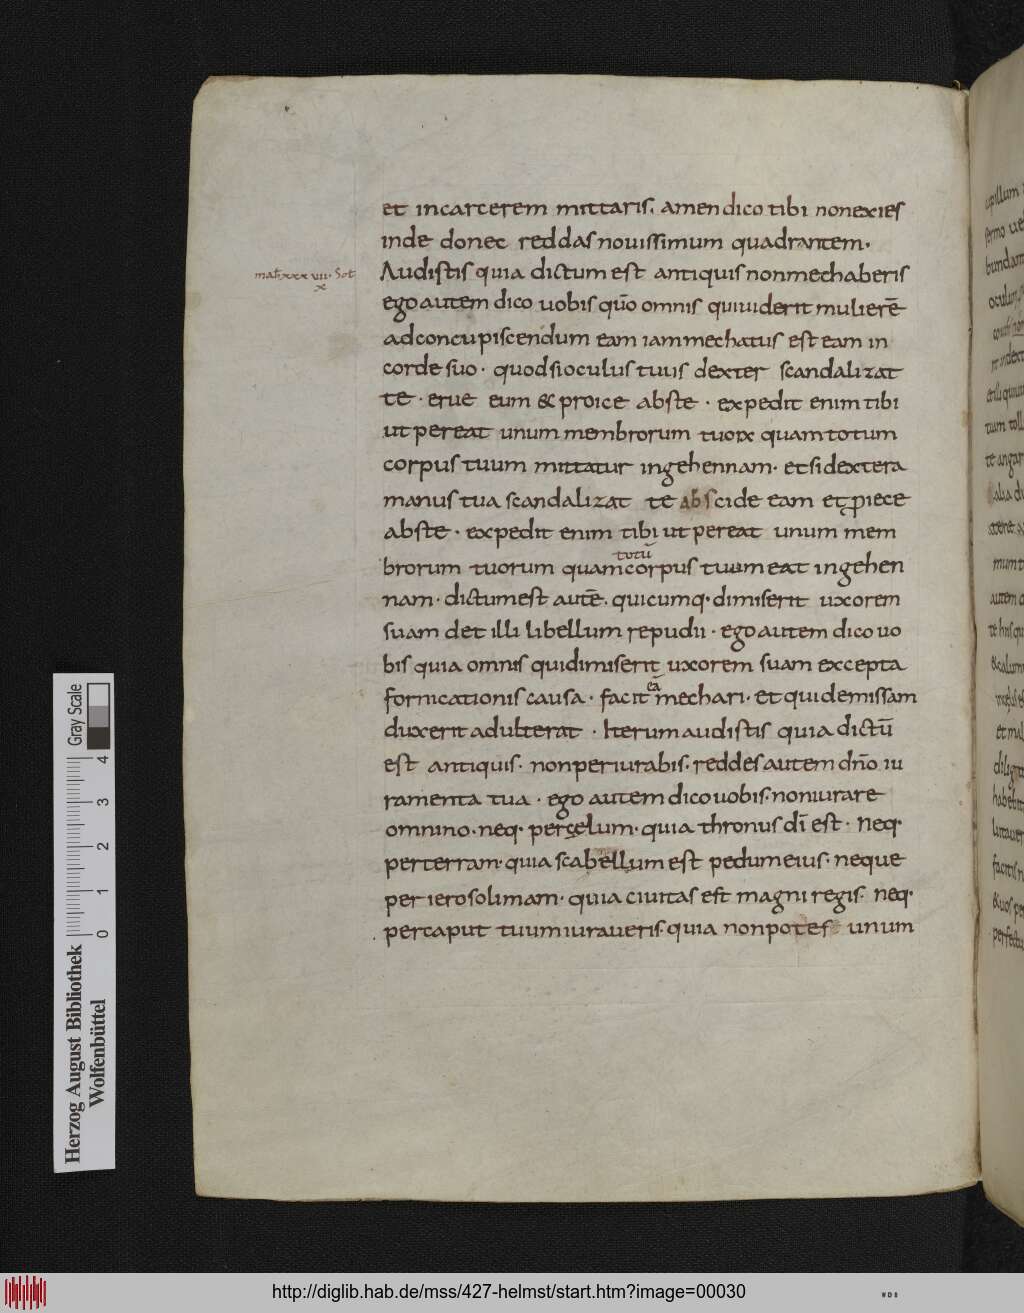 et incarcerem mittaris. amen dico tibi nonexies
inde donec reddas nouissimum quadrantem.
mat xxxvii. Sot
x
Audistis quia dictum est antiquis nonmechaberis
ego autem dico uobis qūo omnis quiuiderit mulierē
adconcupiscendum eam iammechatus est eam in
corde suo. quodsioculus tuus dexter scandalizat
te. erue eum & proice abste. expedit enim tibi
ut pereat unum membrorum tuorꝝ quam totum
corpus tuum mittatur ingehennam. et si dextera
manus tua scandalizat te abscide eam et proiece
abste. expedit enim tibi ut pereat unum mem
totū
brorum tuorum quam corpus tuum eat ingehen
nam. dictumest autē. quicumq. dimiserit uxorem
suam det illi libellum repudii. ego autem dico uo
bis quia omnis quidimiserit uxorem suam excepta
eā
fornicationis causa. facit mechari. et quidemissam
duxerit adulterat. Iterum audistis quia dictū
est antiquis. nonperiurabis. reddes autem dn̄o iu
ramenta tua. ego autem dico uobis. noniurare
omnino. neq. percęlum. quia thronus dī est. neq.
perterram. quia scabellum est pedumeius. neque
per ierosolimam. quia ciuitas est magni regis. neq.
percaput tuum iuraueris. quia nonpotes unum
Gray Scale
4
3
2
1
0
Herzog August Bibliothek
Wolfenbüttel
http://diglib.hab.de/mss/427-helmst/start.htm?image=00030